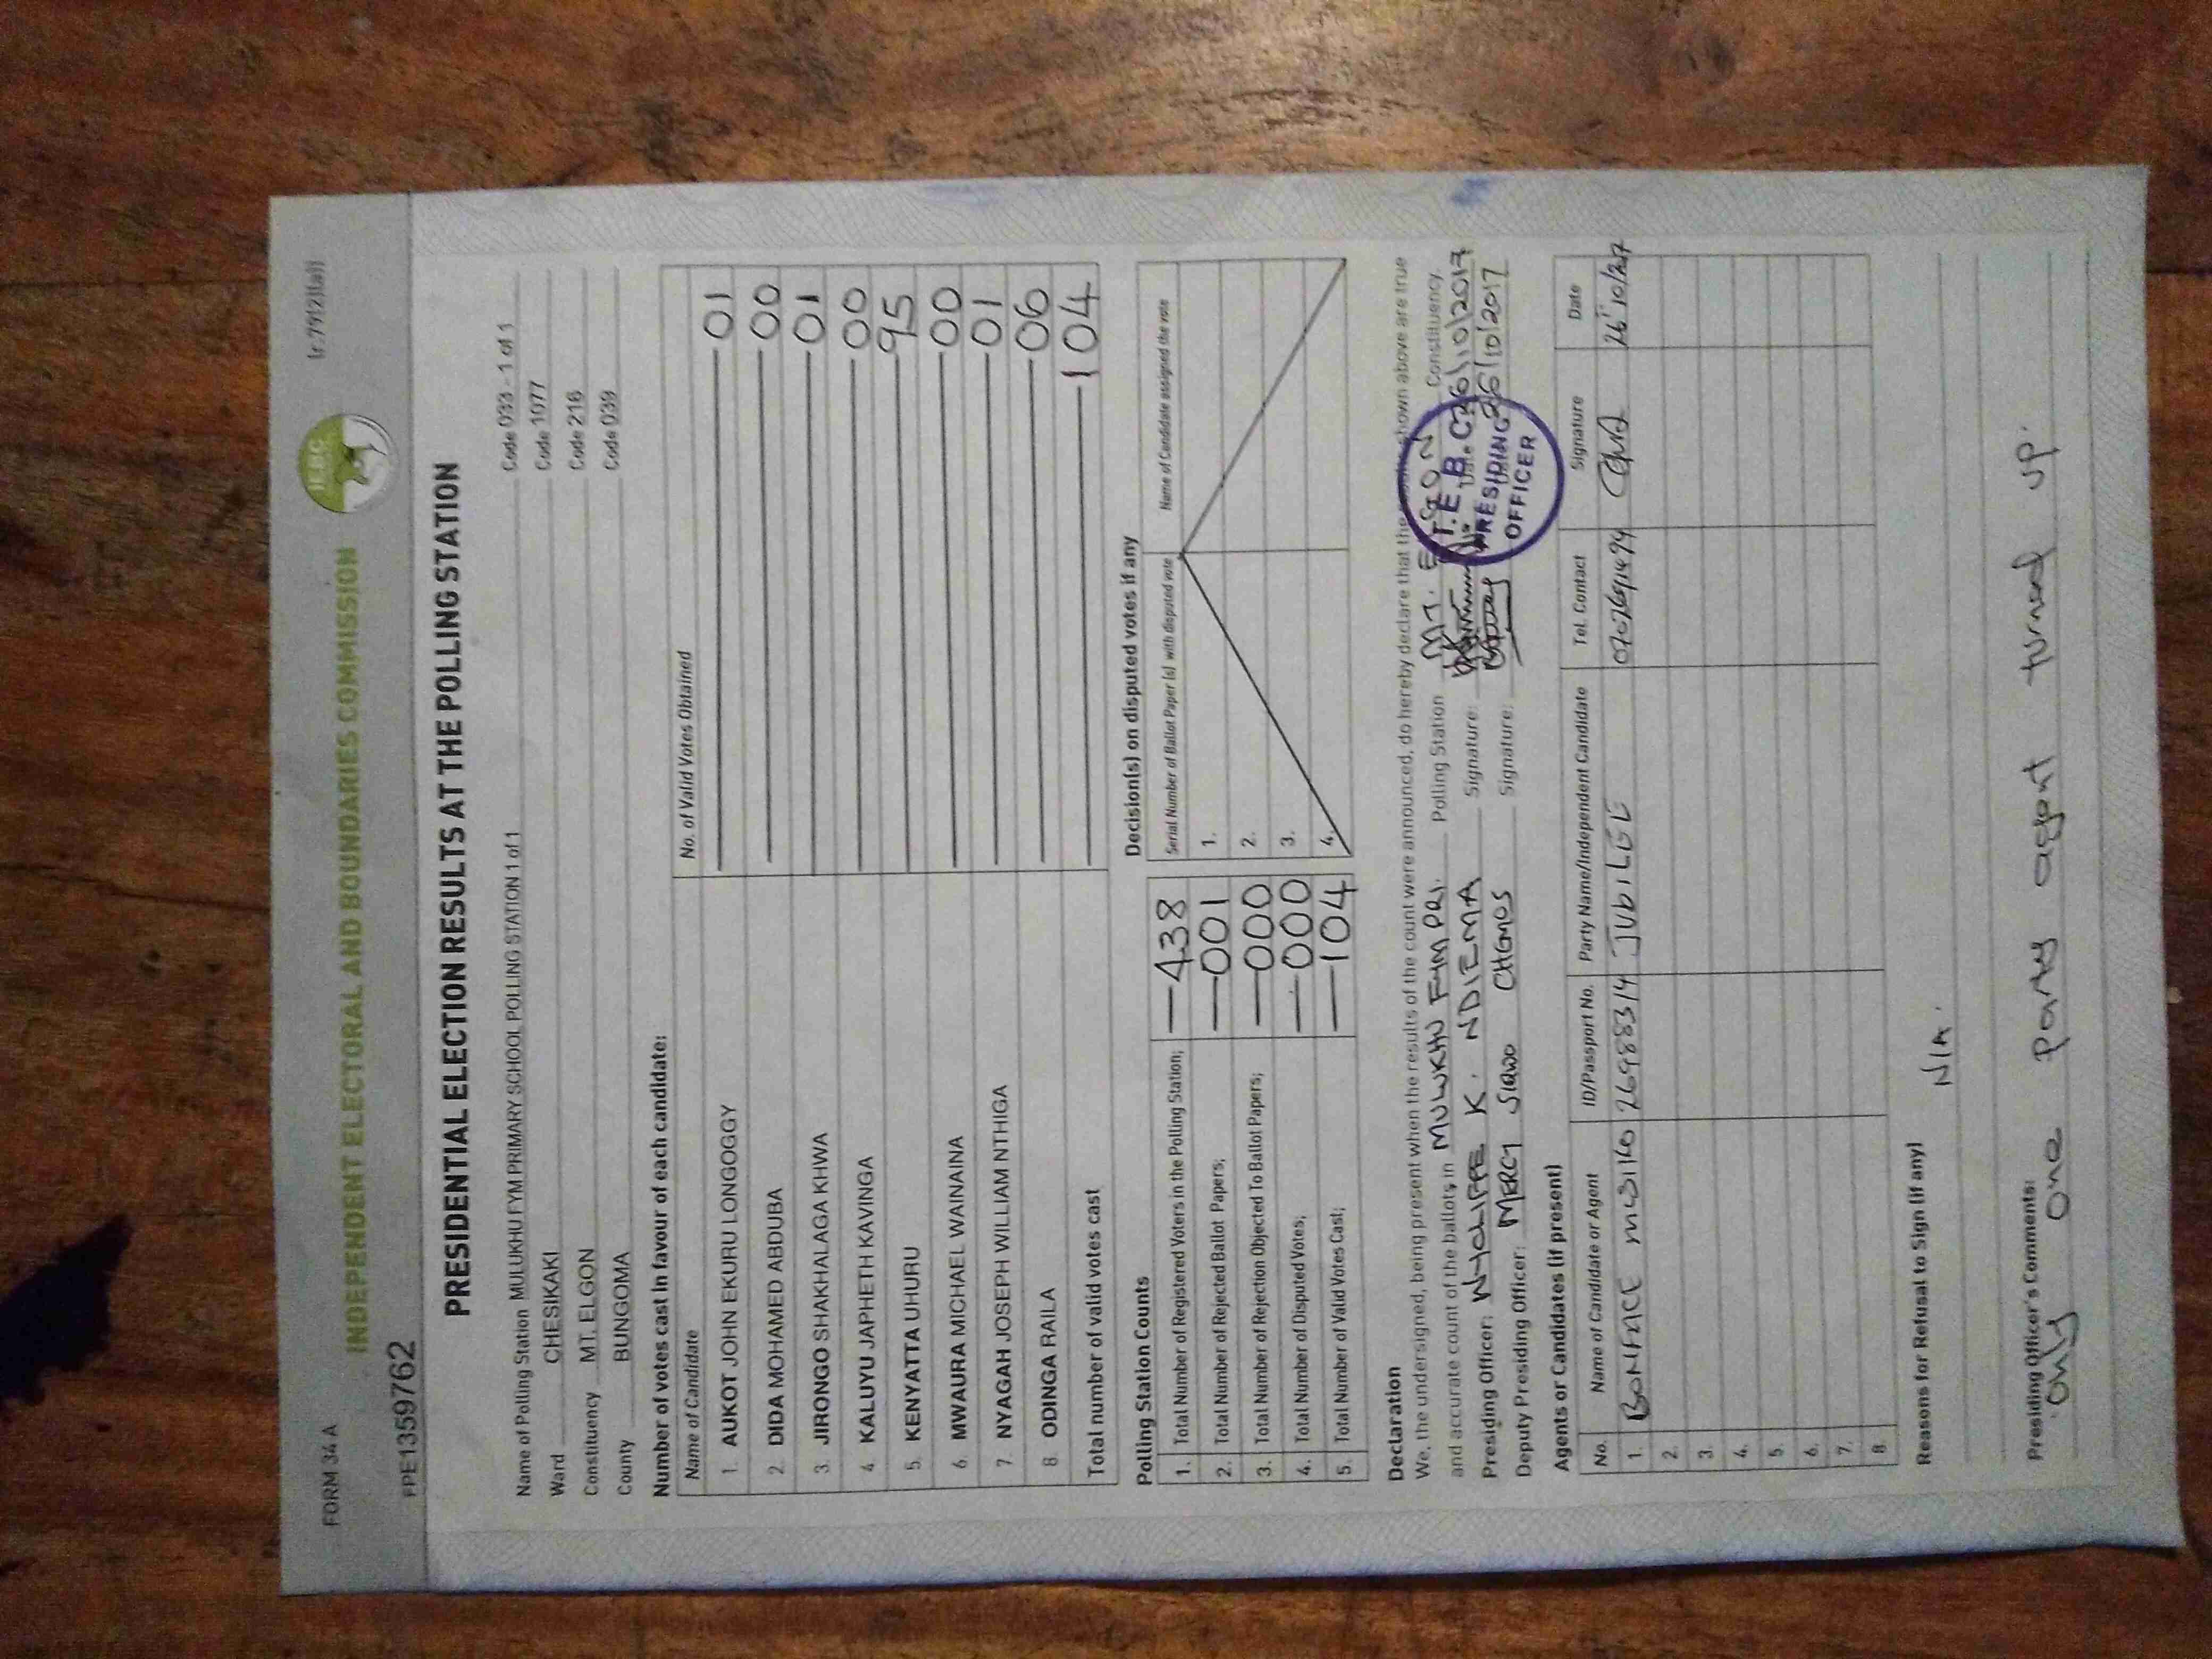 FORM 34 A
(r.79(2)(a))
INDEPENDENT ELECTORAL AND BOUNDARIES COMMISSION
IEBC
FPE1359762
PRESIDENTIAL ELECTION RESULTS AT THE POLLING STATION
Name of Polling Station MULUKHU FYM PRIMARY SCHOOL POLLING STATION 1 of 1 Code 033 - 1 of 1
Ward CHESIKAKI Code 1077
Constituency MT. ELGON Code 216
County BUNGOMA Code 039
Number of votes cast in favour of each candidate:
Name of Candidate No. of Valid Votes Obtained
1. AUKOT JOHN EKURU LONGOGGY 01
2. DIDA MOHAMED ABDUBA 00
3. JIRONGO SHAKHALAGA KHWA 01
4. KALUYU JAPHETH KAVINGA 00
5. KENYATTA UHURU 95
6. MWAURA MICHAEL WAINAINA 00
7. NYAGAH JOSEPH WILLIAM NTHIGA 01
8. ODINGA RAILA 06
Total number of valid votes cast 104
Polling Station Counts
1. Total Number of Registered Voters in the Polling Station; 438
2. Total Number of Rejected Ballot Papers; 001
3. Total Number of Rejection Objected To Ballot Papers; 000
4. Total Number of Disputed Votes; 000
5. Total Number of Valid Votes Cast; 104
Decision(s) on disputed votes if any
Serial Number of Ballot Paper (s) with disputed vote Name of Candidate assigned the vote
1.
2.
3.
4.
Declaration
We, the undersigned, being present when the results of the count were announced, do hereby declare that the results shown above are true
and accurate count of the ballots in MULUKHU FYM PRI. Polling Station MT. ELGON Constituency.
Presiding Officer: K. NDIEMA Signature: Date 26/10/2017
Deputy Presiding Officer: MERCY CHEMOS Signature: 26/10/2017
I.E.B.C
PRESIDING
OFFICER
Agents or Candidates (if present)
No. Name of Candidate or Agent ID/Passport No. Party Name/Independent Candidate Tel. Contact Signature Date
1. BONFACE 26988314 JUBILEE
2.
3.
4.
5.
6.
7.
8.
Reasons for Refusal to Sign (if any)
N/A.
Presiding Officer's Comments:
Only one party agent turned up.